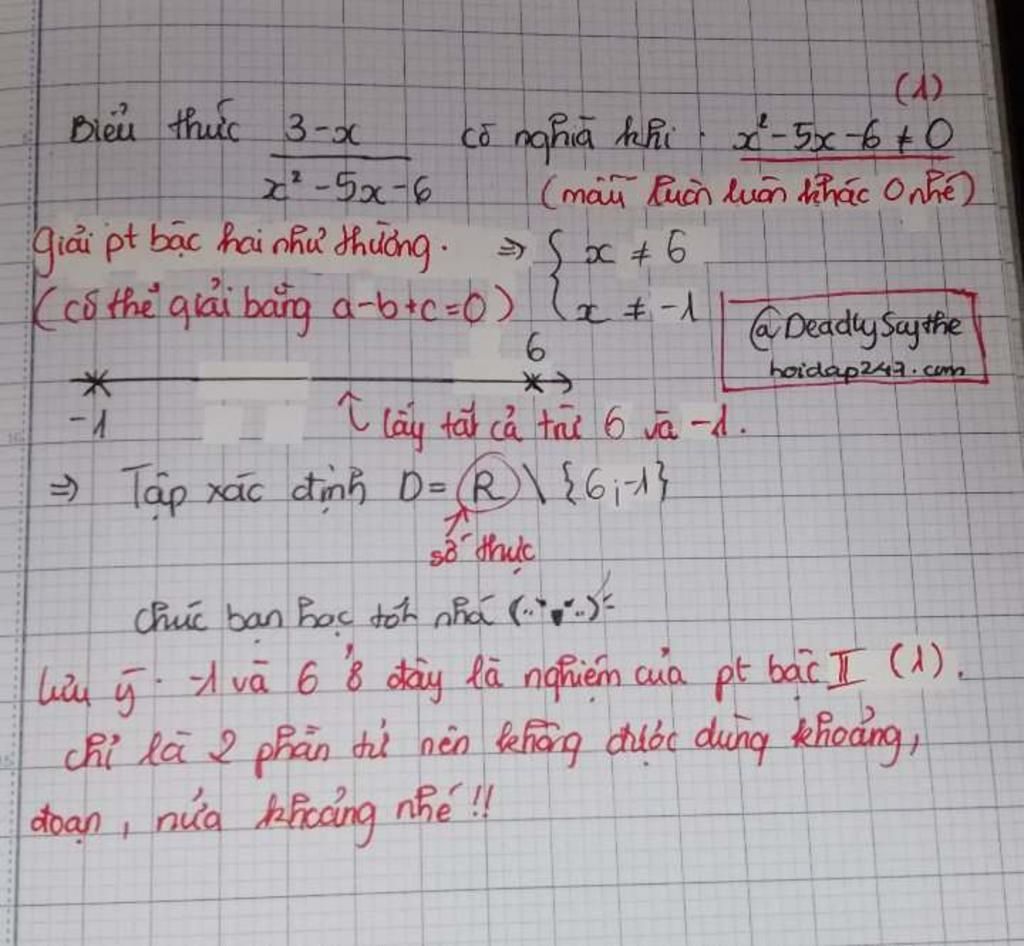 (1)
Biểu thức \frac{3-x}{x²-5x-6} có nghĩa khi: x²-5x-6 ≠ 0
(mẫu luôn luôn khác 0 nhé)
Giải pt bậc hai như thường. ⇒ { x ≠ 6
(có thể giải bằng a-b+c=0) { x ≠ -1
@DeadlySaythe
hoidap247.com
6
-1
↑ lấy tất cả trừ 6 và -1.
⇒ Tập xác định D = R \ {6;-1}
số thực
Chúc bạn học tốt nhá
Lưu ý: -1 và 6 ở đây là nghiệm của pt bậc II (1).
chỉ là 2 phần tử nên không được dùng khoảng,
đoạn, nửa khoảng nhé!!